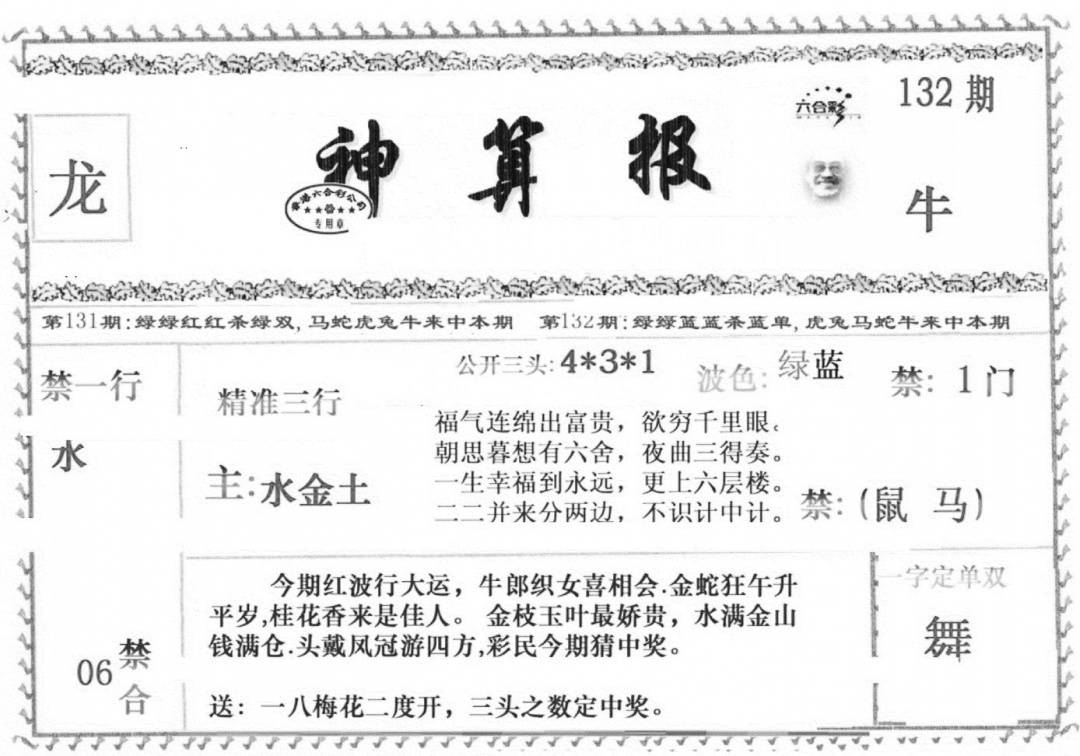 六合彩
132期
龙
神算报
香港六合彩公司
专用章
牛
第131期:绿绿红红杀绿双,马蛇虎兔牛来中本期 第132期:绿绿蓝蓝杀蓝单,虎兔马蛇牛来中本期
禁一行
水
精准三行
主:水金土
公开三头:4*3*1
波色:绿蓝
禁:1门
福气连绵出富贵，欲穷千里眼。
朝思暮想有六舍，夜曲三得奏。
一生幸福到永远，更上六层楼。
二二并来分两边，不识计中计。
禁:(鼠 马)
06禁合
今期红波行大运，牛郎织女喜相会.金蛇狂午升
平岁,桂花香来是佳人。金枝玉叶最娇贵，水满金山
钱满仓.头戴凤冠游四方,彩民今期猜中奖。
送：一八梅花二度开，三头之数定中奖。
一字定单双
舞